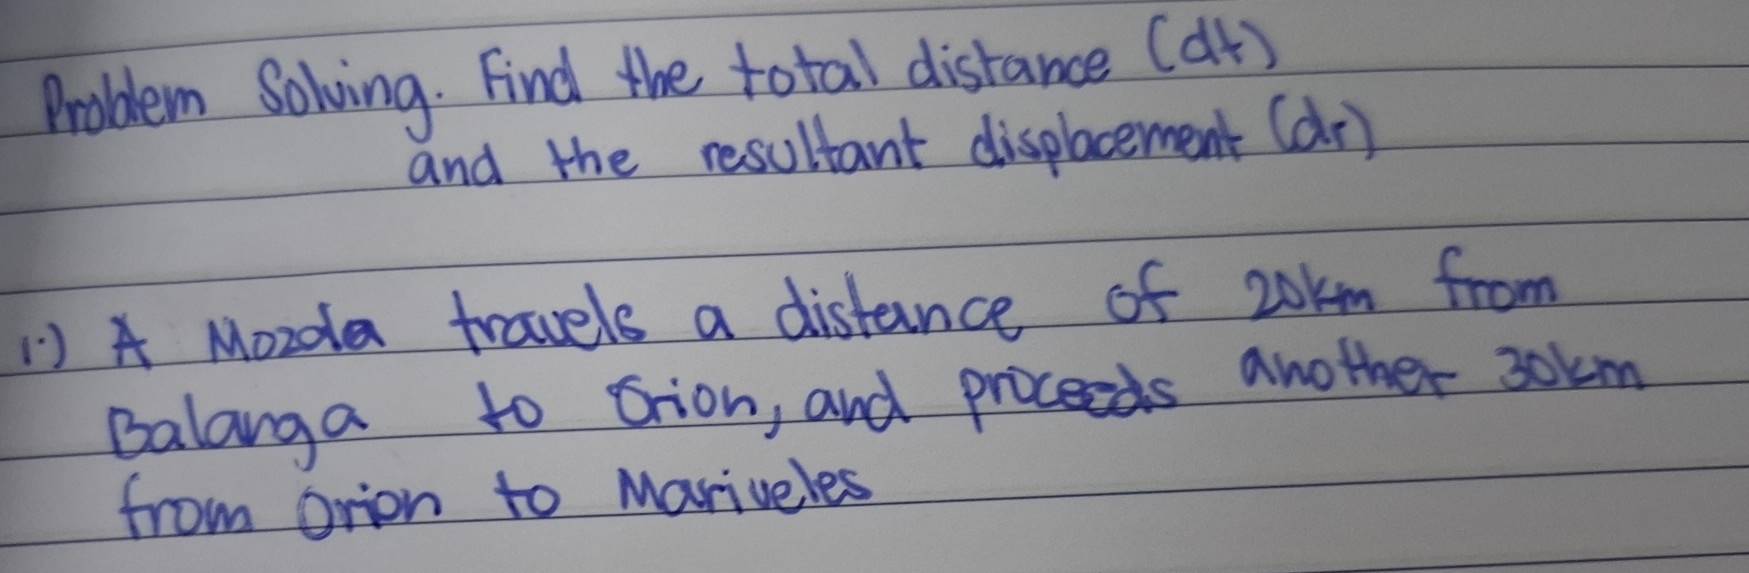 Problem Solving. Find the total distance (dt)
and the resultant displacement (dr)
1.) A Mozda travels a distance of 20km from
Balanga to Orion, and proceeds another 30km
from Orion to Mariveles